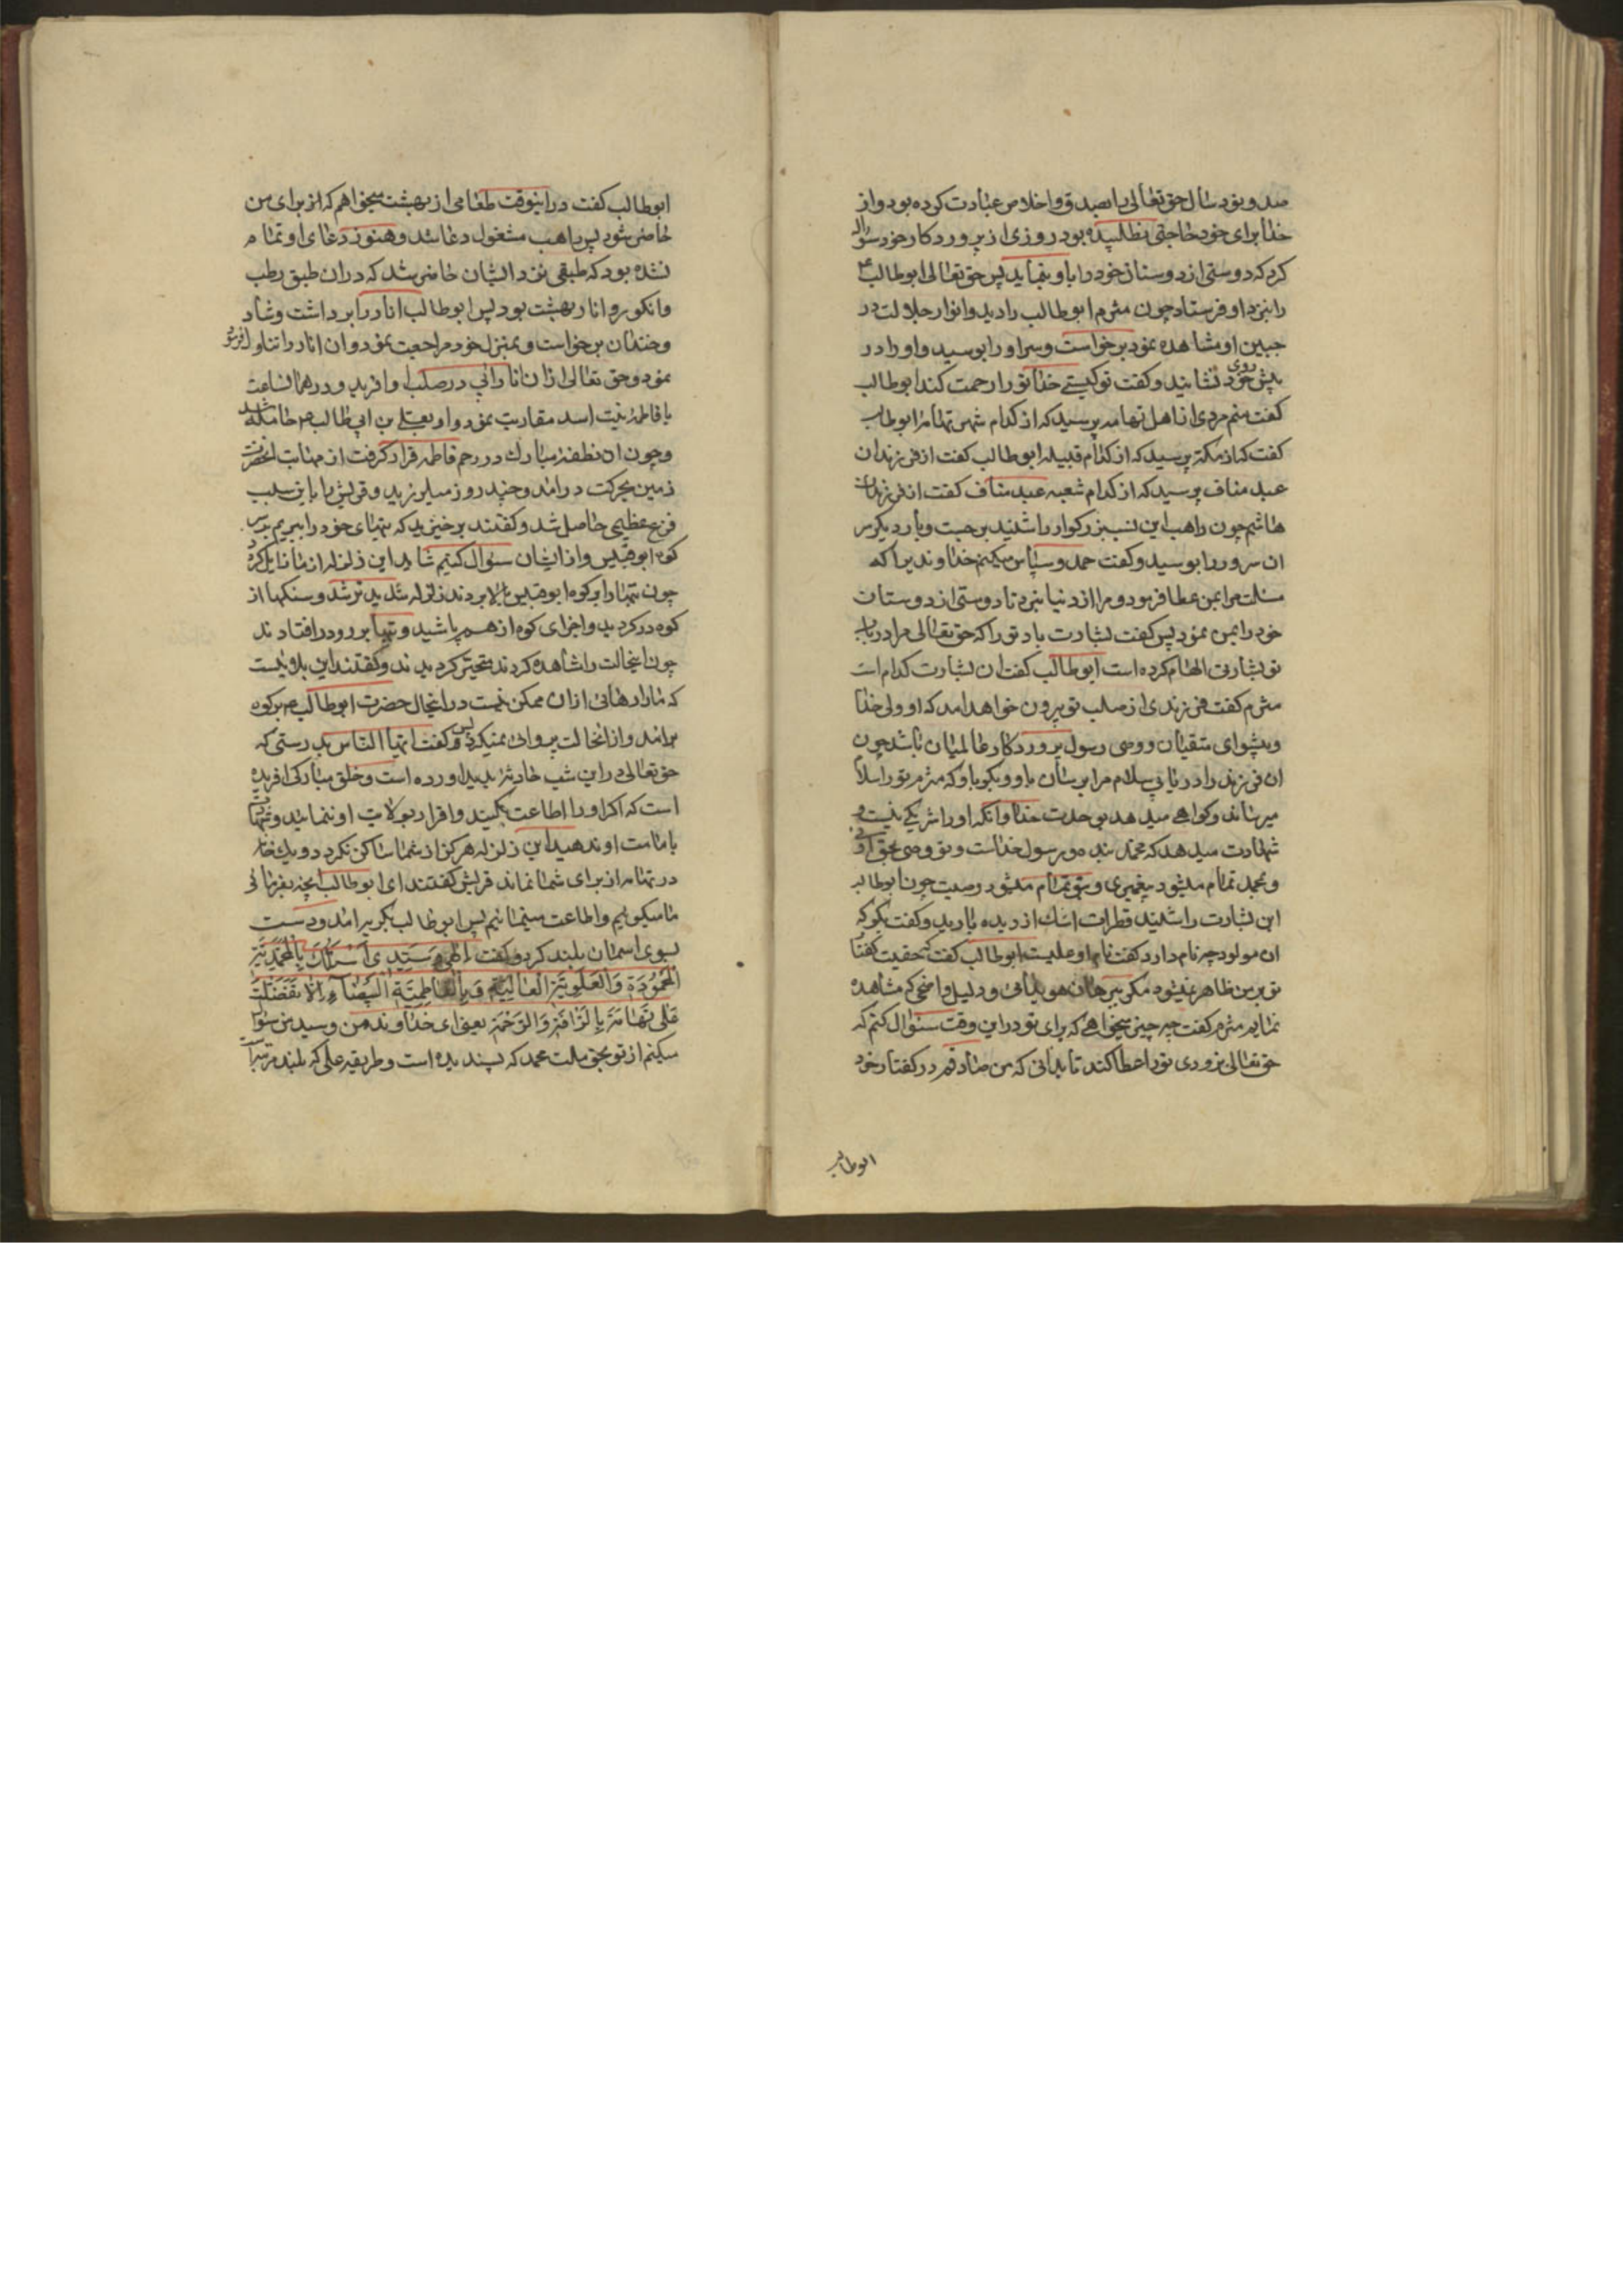 صد و نود سال حق تعالی را بصدق و اخلاص عبادت کرده بود و از
خدا برای خود حاجتی نطلبیده بود روزی از پروردکار خود سؤال
کرد که دوستی از دوستان خود را باو بنماید پس حق تعالی ابو طالب ع
را بنزد او فرستاد چون مثرم ابو طالب را دید و انوار جلالت در
جبین او مشاهده نمود برخواست و سر او را بوسید و او را در
پیش روی خود نشانید و کفت تو کیستی خدا تو را رحمت کند ابو طالب
کفت منم مردی از اهل تهامه پرسید که از کدام شهر تهامه ابو طالب
کفت که از مکه پرسید که از کدام قبیله ابو طالب کفت از فرزندان
عبد مناف پرسید که از کدام شعبه عبد مناف کفت از فرزندان
هاشم چون راهب این نسب بزرکوار را شنید برجست و بار دیکر سر
ان سرور را بوسید و کفت حمد و سپاس میکنم خداوندیرا که
مسئلت مرا بمن عطا فرمود و مرا از دنیا نبرد تا دوستی از دوستان
خود را بمن نمود پس کفت بشارت باد تو را که حق تعالی مرا در باب
تو بشارتی الهام کرده است ابو طالب کفت ان بشارت کدام است
مثرم کفت فرزندی از صلب تو بیرون خواهد امد که او ولی خدا
و پیشوای متقیان و وصی رسول پروردکار عالمیان باشد چون
ان فرزند را دریابی سلام مرا برسان باو و بکو باو که مثرم تو را سلام
میرساند و کواهی میدهد بوحدت خدا و انکه او را شریکی نیست و
شهادت میدهد که محمد بنده و رسول خداست و تو وصی بحق اوئی
و بمحمد تمام میشود پیغمبری و بتو تمام میشود وصیت چون ابو طالب
این بشارت را شنید قطرات اشک از دیده بارید و کفت بکو که
ان مولود چه نام دارد کفت نام او علیست ابو طالب کفت که حقیت کفتار
تو بر من ظاهر نمیشود مکر ببرهان هویدائی و دلیل واضحی که مشاهده
نمایم مثرم کفت چه چیز میخواهی که برای تو در این وقت سئوال کنم که
حق تعالی بزودی تو را عطا کند تا بدانی که من صادقم در کفتار خود
ابو طالب
ابو طالب کفت در اینوقت طعامی از بهشت میخواهم که از برای من
حاضر شود پس راهب مشغول دعا شد و هنوز دعای او تمام
نشده بود که طبقی نزد ایشان حاضر شد که در ان طبق رطب
و انکور و انار بهشت بود پس ابو طالب انار را برداشت و شاد
و خندان برخواست و بمنزل خود مراجعت نمود و ان انار را تناول فرمود
نمود و حق تعالی از ان انار ابی در صلب او افرید و در همان ساعت
با فاطمه بنت اسد مقاربت نمود و او بعلی بن ابی طالب ع حامله شد
و چون ان نطفه مبارک در رحم فاطمه قرار کرفت از مهابت انحضرت
زمین بحرکت درامد و چند روز میلرزید و قریش را باین سبب
فزع عظیمی حاصل شد و کفتند برخیزید که بتهای خود را ببریم بر سر
کوه ابو قبیس و از ایشان سئوال کنیم شاید این زلزله از ما زایل کردد
چون بتها را بر کوه ابو قبیس بالا بردند زلزله شدیدتر شد و سنکها از
کوه در کردید و اجزای کوه از هم پاشید و بتها بر رو در افتادند
چون اینحالت را مشاهده کردند متحیر کردیدند و کفتند این بلائیست
که ما را رهائی از ان ممکن نیست در اینحال حضرت ابو طالب ع بر کوه
برامد و از انحالت پروائی نمیکرد پس و کفت ایها الناس بدرستی که
حق تعالی در این شب حادثه پدید اورده است و خلق مبارکی افریده
است که اکر او را اطاعت نکنید و اقرار بولایت او ننمائید و شهادت
بامامت او ندهید این زلزله هرکز از شما ساکن نکردد و یک خانه
در تهامه از برای شما نماند قریش کفتند ای ابو طالب انچه بفرمائی
ما میکوئیم و اطاعت مینمائیم پس ابو طالب بکریه امد و دست
بسوی اسمان بلند کرد و کفت اِلهی وَ سَیِّدی اَسْئَلُکَ بِالْمُحَمَّدِیَّةِ
الْمَحْمُودَةِ وَ الْعَلَوِیَّةِ الْعالِیَةِ وَ بِالْفاطِمِیَّةِ الْبَیْضاءِ اِلّا تَفَضَّلْتَ
عَلی تَهامَةَ بِالرَّافَةِ وَ الرَّحْمَةِ یعنی ای خداوند من و سید من سؤال
میکنم از تو بحق ملت محمد که پسندیده است و طریقه علی که بلند مرتبه است